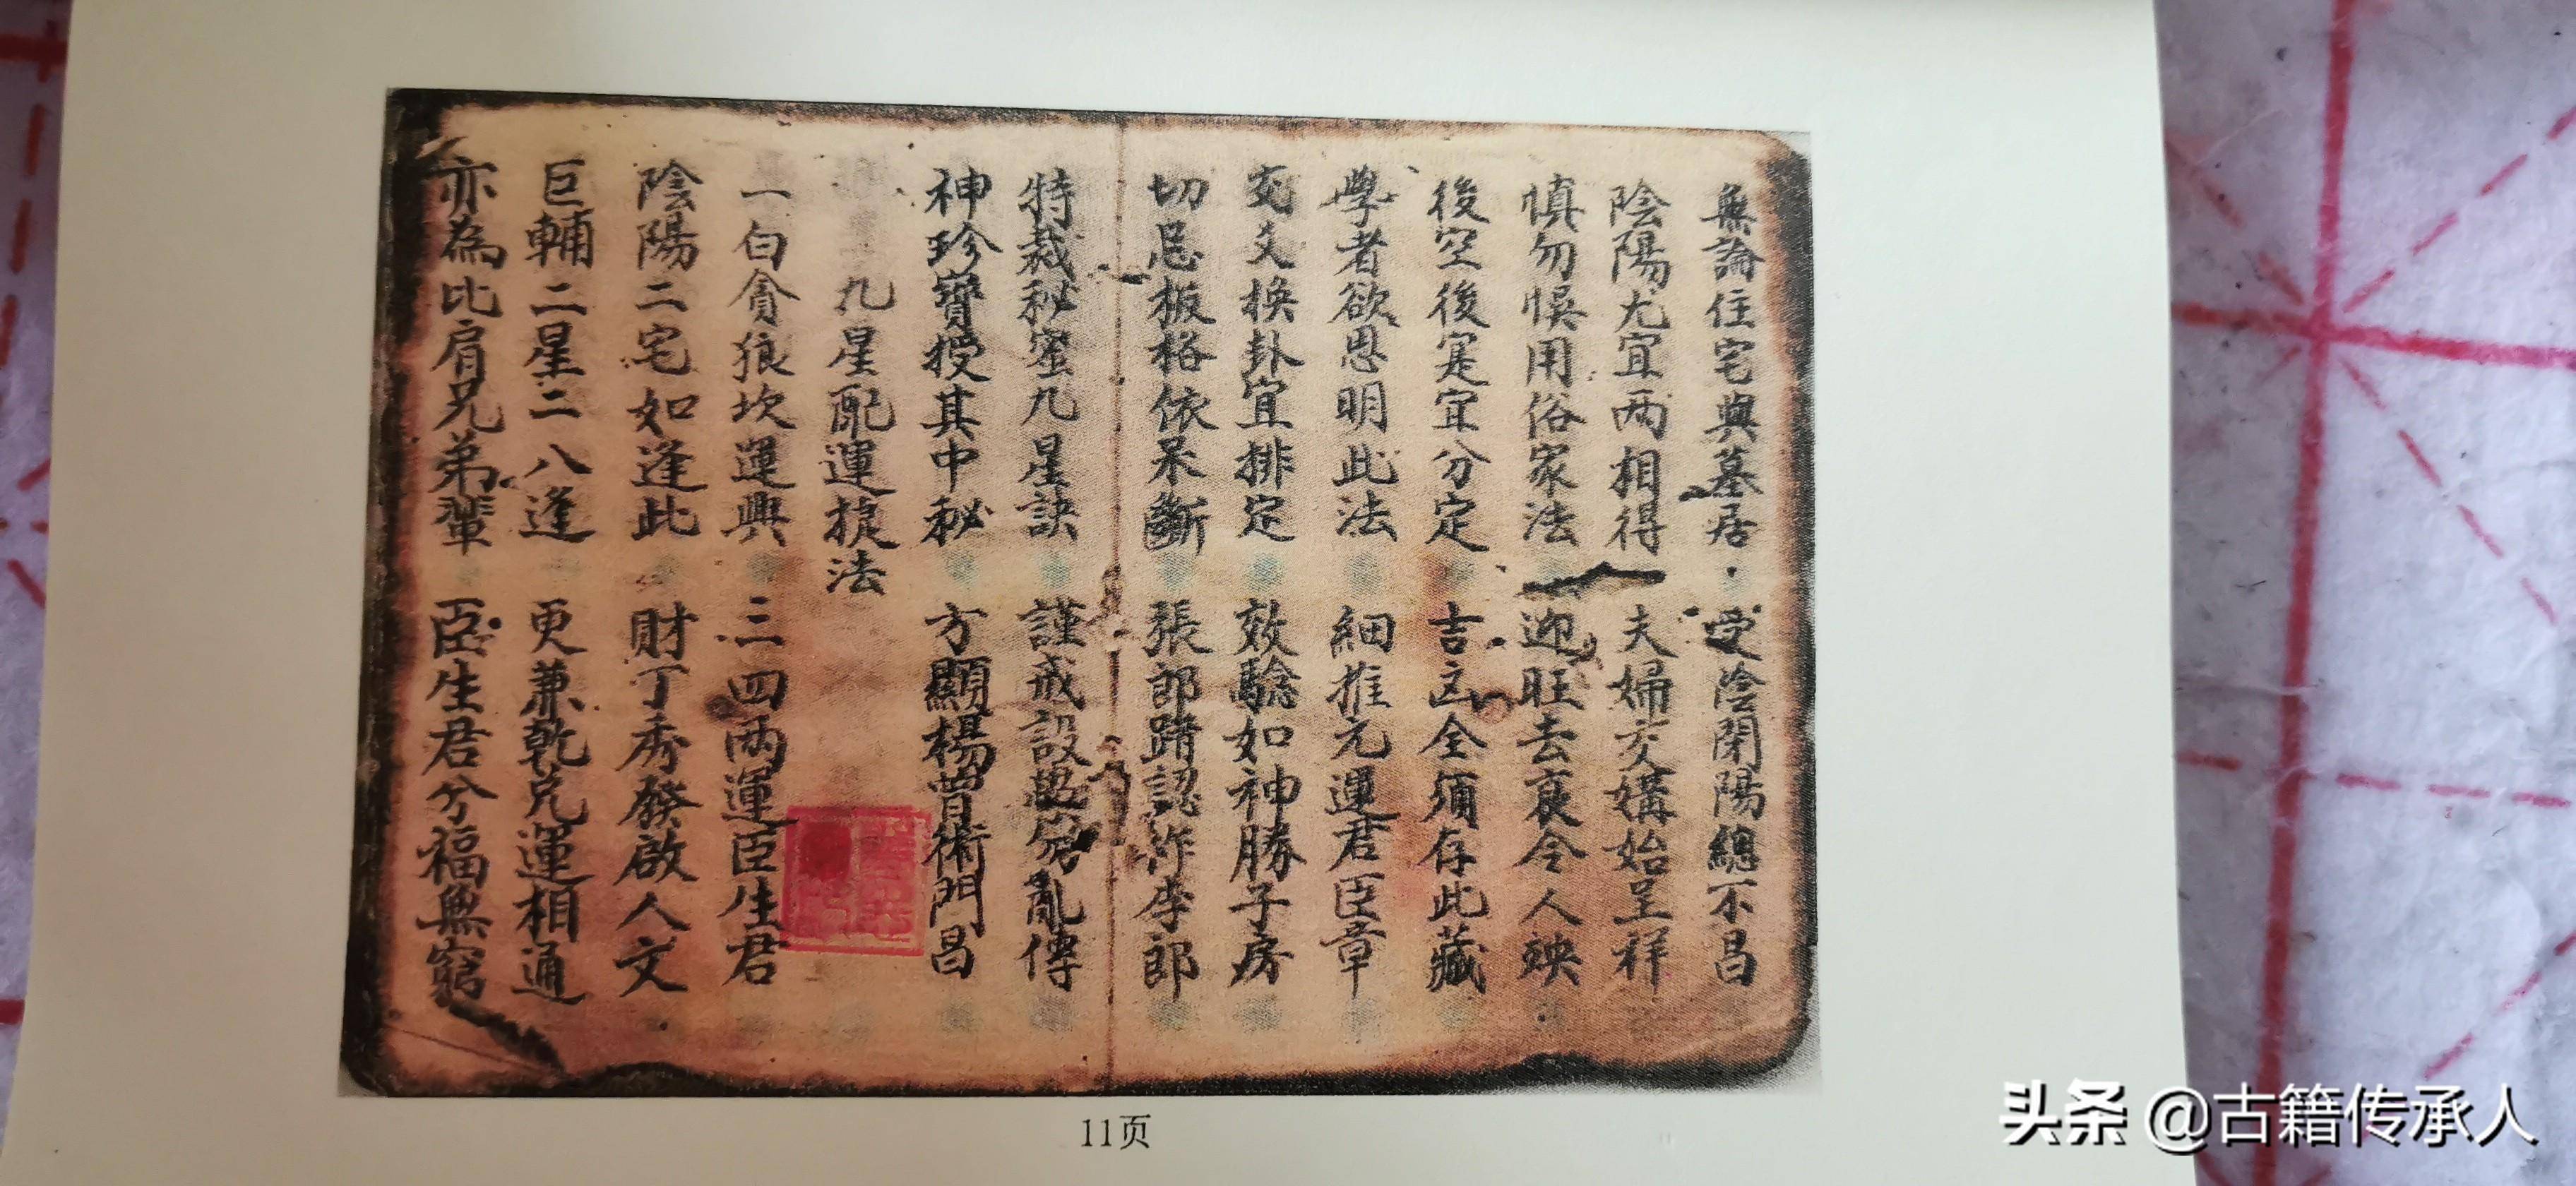 無論住宅與墓居 受陰閉陽總不昌
陰陽尤宜兩相得 夫婦交媾始呈祥
慎勿悞用俗家法 迎旺去衰令人殃
後空後寔宜分定 吉凶全須存此藏
學者欲思明此法 細推元運君臣章
交爻換卦宜排定 效驗如神勝子房
切忌板格依呆斷 張郎錯認作李郎
特裁秘蜜九星訣 謹戒設亂傳
神珍寶授其中秘 方顯楊曾術門昌
九星配運捷法
一白貪狼坎運興 三四兩運臣生君
陰陽二宅如逢此 財丁秀發啟人文
巨輔二星二八逢 更兼乾兌運相通
亦為比肩兄弟輩 臣生君兮福無窮
11页
头条 @古籍传承人